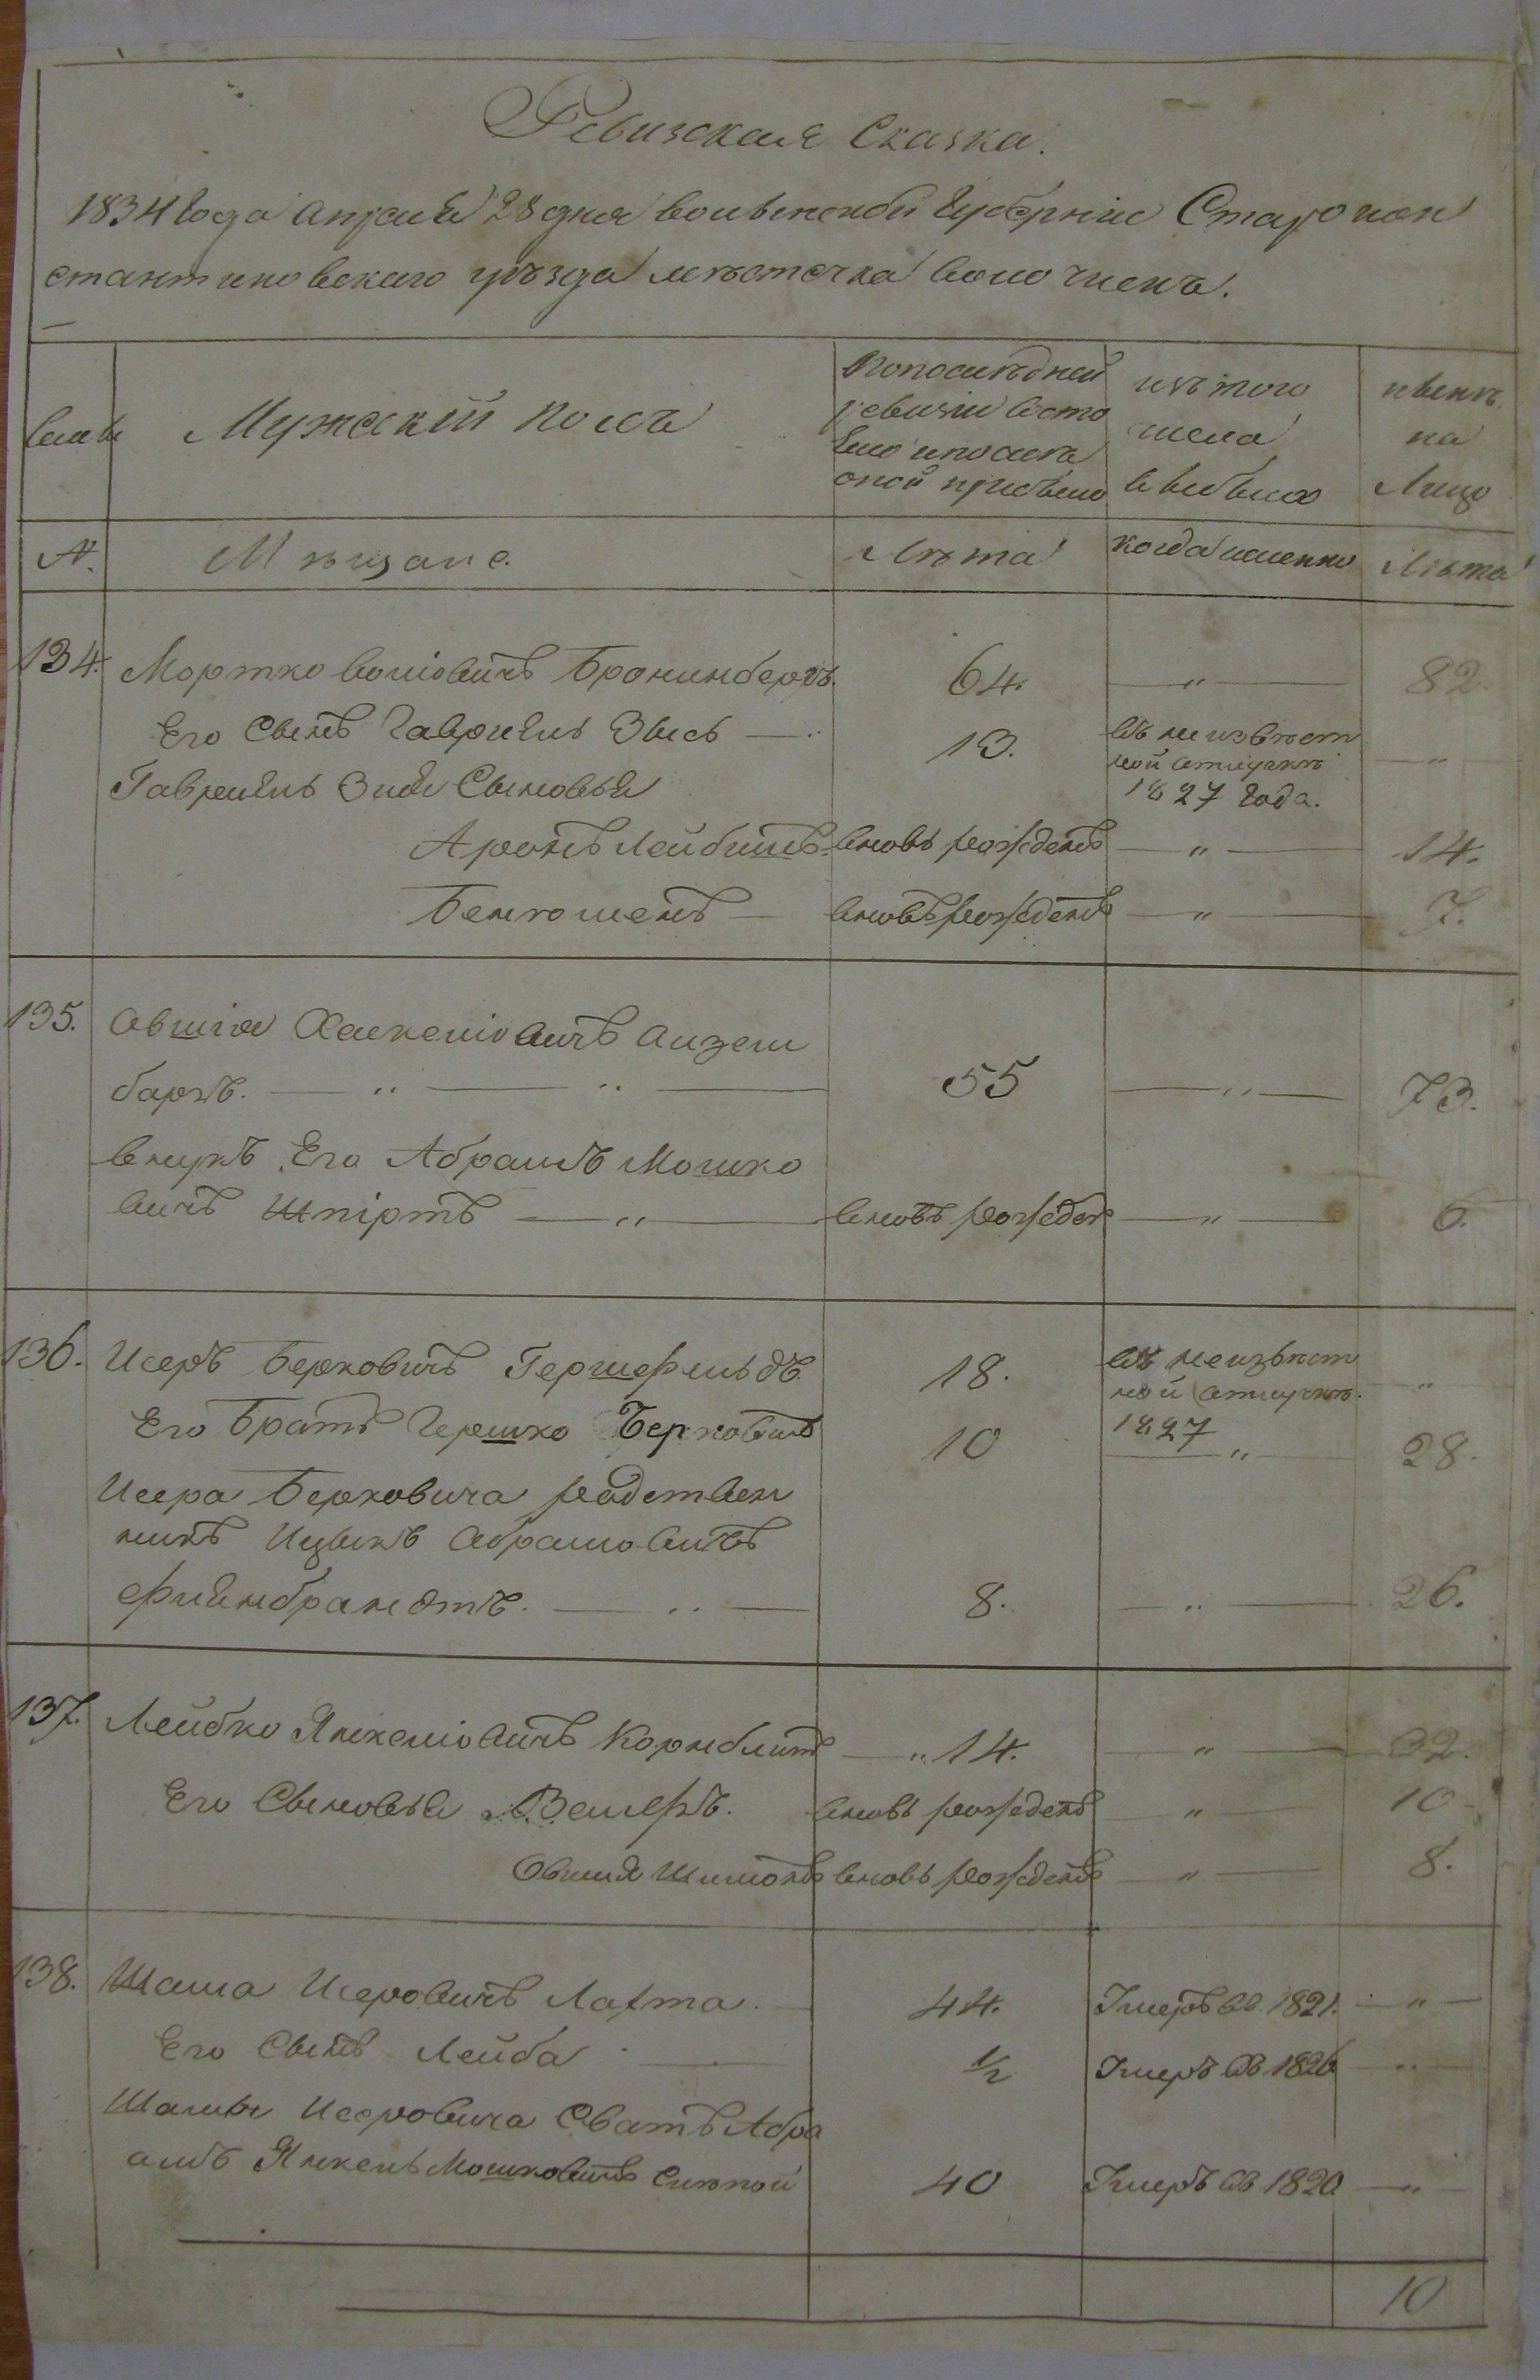 Ревизская Сказка.
1834 года апреля 28 дня волынской губернии Старокон
стантиновского уѣзда мѣстечка Волочиска.
Семьи
Мужский полъ
по последней
ревизии состо
яло и после
оной прибыло
изъ того
числа
выбыло
ныне
на
Лицо
N.
Мѣщане.
Лѣта
когда именно
Лѣта
134. Мортко Волiовичъ Бронинбергъ. 64. — " — 82.
Его Сынъ Гаврiель Зысь — " 13. въ неизвѣст
ной отлучкѣ — " —
Гаврiель Зися Сыновья 1827 года.
Аронъ Лейбишъ вновь рожденъ — " — 14.
Бенюменъ — вновь рожденъ — " — 7.
135. Овшiя Хаскелiовичъ Айзен
баргъ. — " — " — 55 — " — 73.
внукъ Его Абрамъ Мошко
вичъ Шпiртъ — " — вновь рожден — " — 6.
136. Исеръ Берковичъ Гершефельдъ. 18. въ неизвѣст
ной отлучкѣ. "
Его Братъ Гершко Берковичъ 10 1827 — " — 28.
Исера Берковича родствен
никъ Ицыкъ Абрамовичъ
Файнбрандтъ. — " — 8. — " — 26.
137. Лейбко Янкелiовичъ Корнблитъ — " 14. — " — 32.
Его Сыновья Велефъ. вновь рожденъ — " — 10
Овшия Шимонъ вновь рожденъ — " — 8.
138. Шама Исеровичъ Лахта. — 44. Умеръ въ 1821. — " —
Его Сынъ Лейба — 1/2 Умеръ въ 1826 — " —
Шамы Исеровича Сватъ Абра
амъ Янкель Мошковичъ Слѣпой 40 Умеръ въ 1820 — " —
10